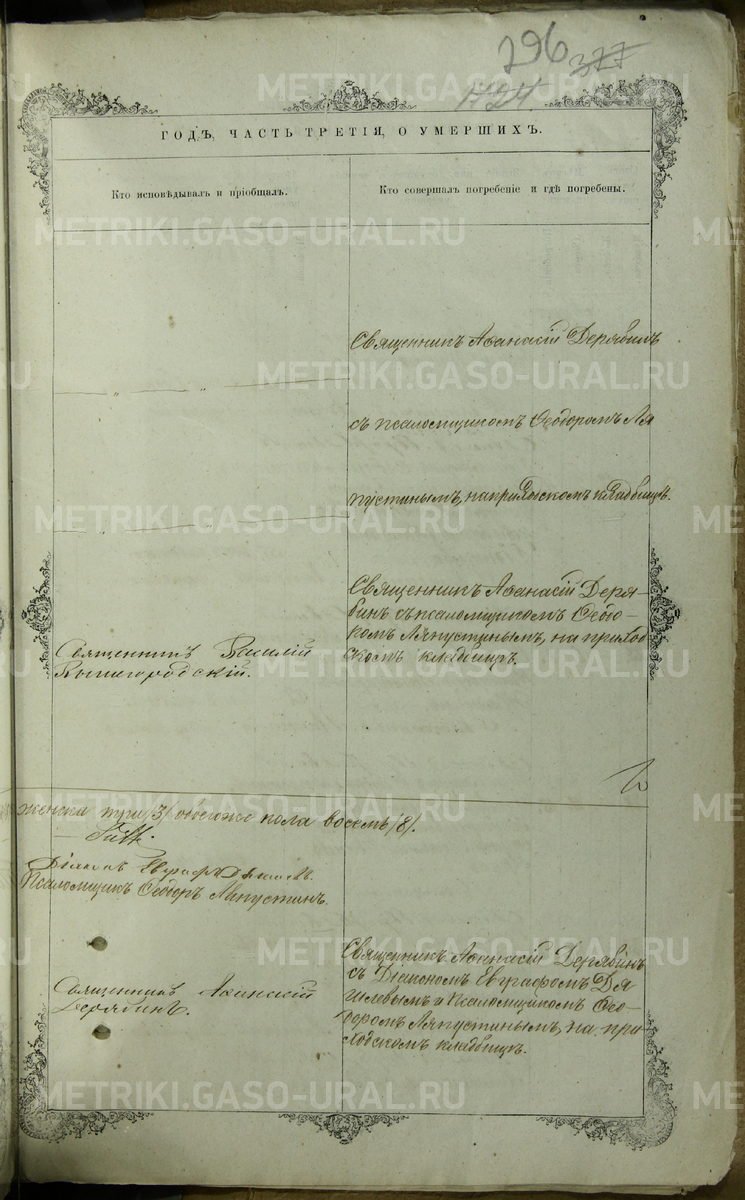 296
327
424
ГОДЪ, ЧАСТЬ ТРЕТІЯ, О УМЕРШИХЪ.
Кто исповѣдывалъ и пріобщалъ.
Кто совершалъ погребеніе и гдѣ погребены.
Священникъ Аѳанасій Дерябинъ
съ псаломщикомъ Ѳеодоромъ Ля
пустинымъ, на приходскомъ кладбищѣ.
Священникъ Аѳанасій Деря-
бинъ съ псаломщикомъ Ѳедо-
ромъ Ляпустинымъ, на приход
скомъ кладбищѣ.
Священникъ Василій
Вышегородскій.
женска три /3/ обоего же пола восемь /8/.
Діаконъ Евграфъ
Псаломщикъ Ѳеодоръ Ляпустинъ.
Священникъ Аѳанасій
Дерябинъ.
Священникъ Аѳанасій Дерябинъ
съ Діакономъ Евграфомъ Дя
гилевымъ и Псаломщикомъ Ѳео-
доромъ Ляпустинымъ, на при
ходскомъ кладбищѣ.
METRIKI.GASO-URAL.RU